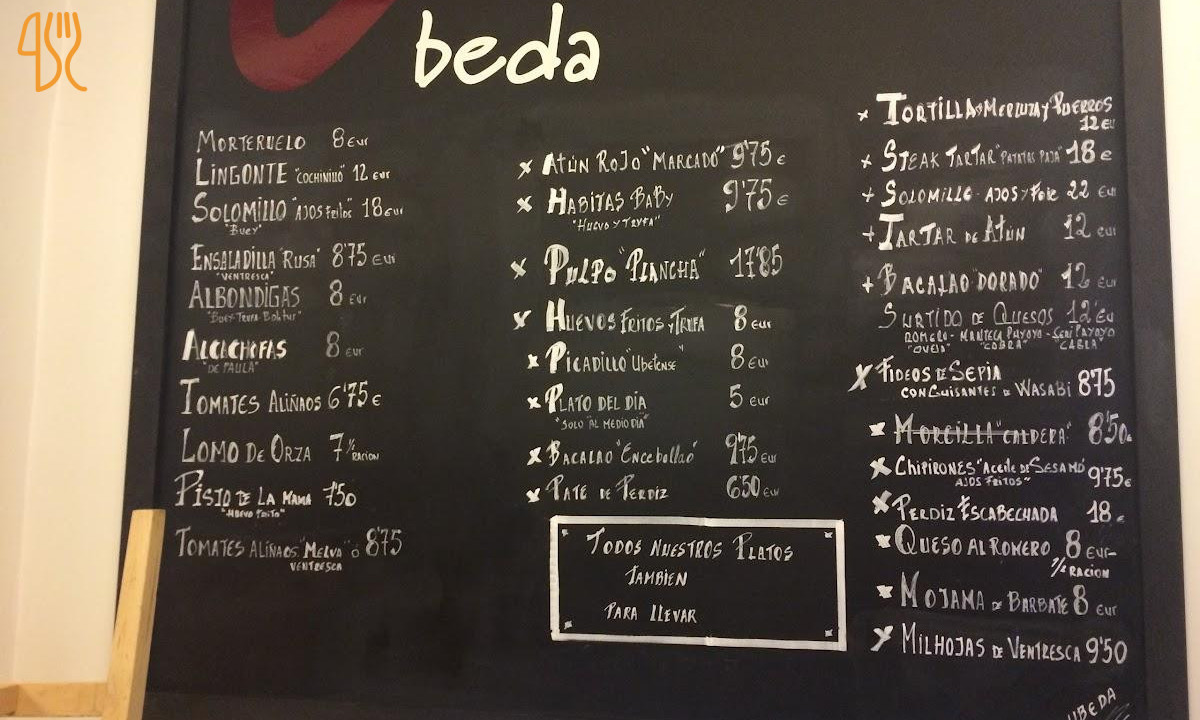 beda
MORTERUELO 8 EUR
LINGONTE "COCHINILLO" 12 EUR
SOLOMILLO "AJOS FRITOS" 18 EUR
"BUEY"
ENSALADILLA "RUSA" 8'75 EUR
"VENTRESCA"
ALBONDIGAS 8 EUR
ALCACHOFAS 8 EUR
"DE PAULA"
TOMATES ALIÑAOS 6'75 €
LOMO DE ORZA 7 ½ RACION
PISTO DE LA MAMA 7'50
"HUEVO FRITO"
TOMATES ALIÑAOS "MELVA" Ó 8'75
VENTRESCA
x ATÚN ROJO "MARCADO" 9'75 €
x HABITAS BABY 9'75 €
"HUEVO Y TRUFA"
x PULPO "PLANCHA" 17'85
x HUEVOS FRITOS Y TRUFA 8 EUR
x PICADILLO "UBETENSE" 8 EUR
x PLATO DEL DÍA 5 EUR
"SOLO" AL MEDIO DÍA"
x BACALAO "ENCEBOLLAO" 9'75 EUR
x PATE DE PERDIZ 6'50 EUR
TODOS NUESTROS PLATOS
TAMBIEN
PARA LLEVAR
x TORTILLA MERLUZA Y PUERROS
12 EU
+ STEAK TARTAR "PATATAS PAJA" 18 €
+ SOLOMILLO AJOS Y FOIE 22 EUR
+ TARTAR DE ATÚN 12 EUR
+ BACALAO "DORADO" 12 EUR
SURTIDO DE QUESOS 12 EU
ROMERO - MANTECA PAYOYO - SEMI PAYOYO
"OVEJA" "COBRA" "CABLA"
x FIDEOS DE SEPIA
CON GUISANTES DE WASABI 875
x MORCILLA "CALDERA" 8'50
x CHIPIRONES "ACEITE DE SESAMO
AJOS FRITOS" 9'75 €
x PERDIZ ESCABECHADA 18 €
x QUESO AL ROMERO 8 EUR-
½ RACION
x MOJAMA DE BARBATE 8 EUR
x MILHOJAS DE VENTRESCA 9'50
UBEDA